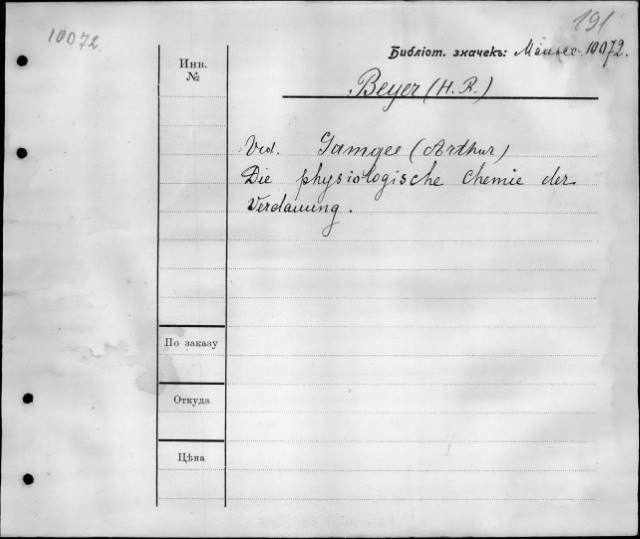 10072
191
Библіот. значекъ: 10072.
Инв. №
Beyer (H. R.)
Vid. Gamgee (Arthur)
Die physiologische Chemie der
Verdauung.
По заказу
Откуда
Цѣна